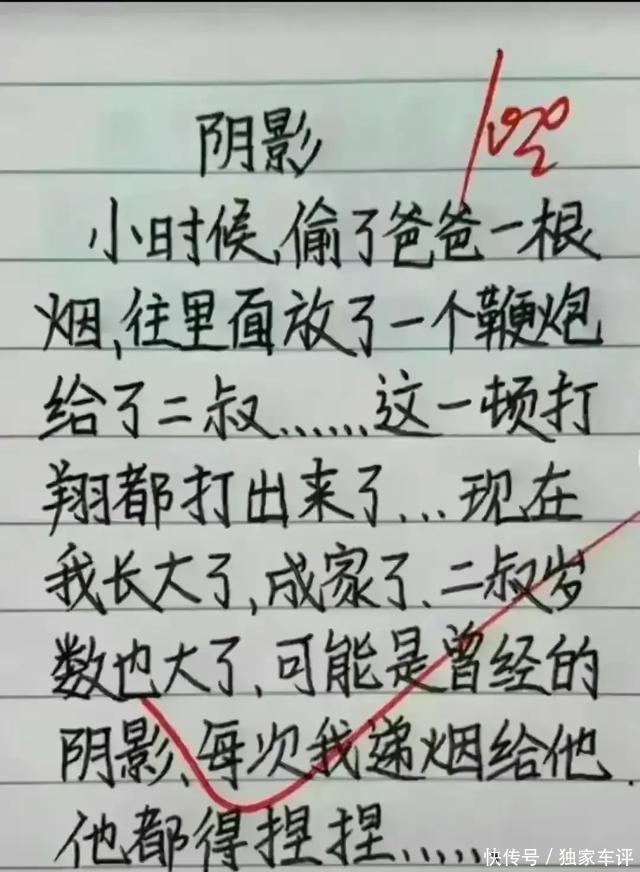 阴影
小时候,偷了爸爸一根
烟,往里面放了一个鞭炮
给了二叔......这一顿打
翔都打出来了...现在
我长大了,成家了、二叔岁
数也大了,可能是曾经的
阴影、每次我递烟给他.
他都得捏捏......
快传号/独家车评